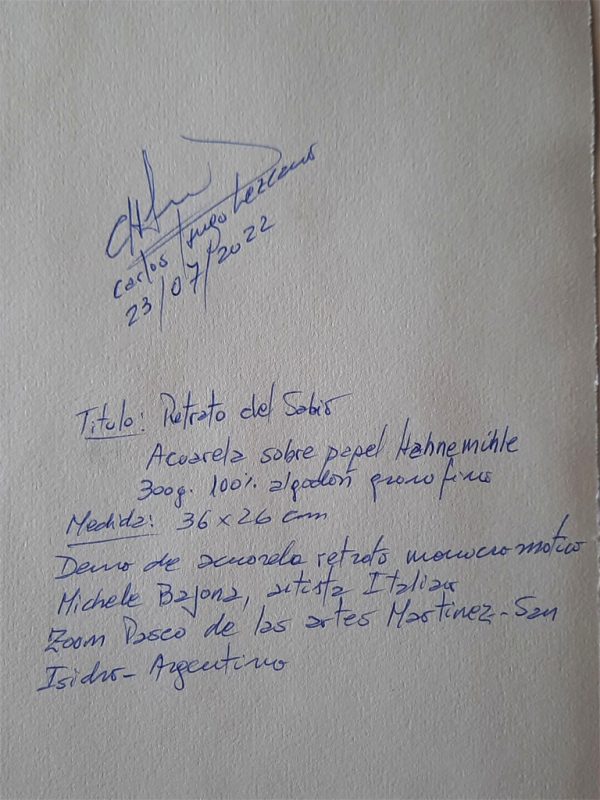 Carlos Hugo Lezcano
23/07/2022
Titulo: Retrato del Sabio
Acuarela sobre papel Hahnemühle
300g. 100% algodón grano fino
Medida: 36 x 26 cm
Demo de acuarela retrato monocromatico
Michele Bajona, artista Italiano
Zoom Paseo de las artes Martinez - San
Isidro - Argentina